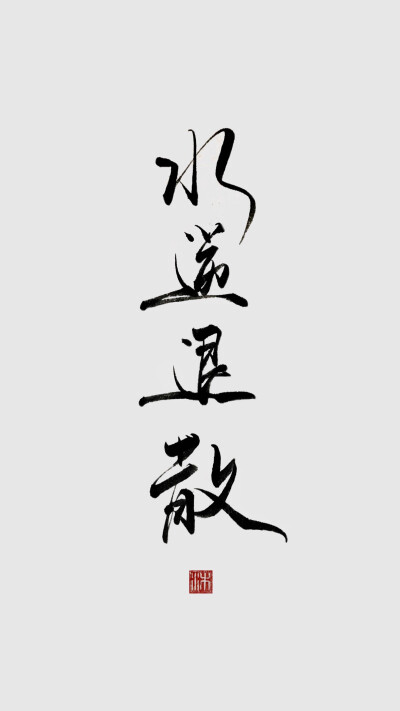 水逆退散
沐